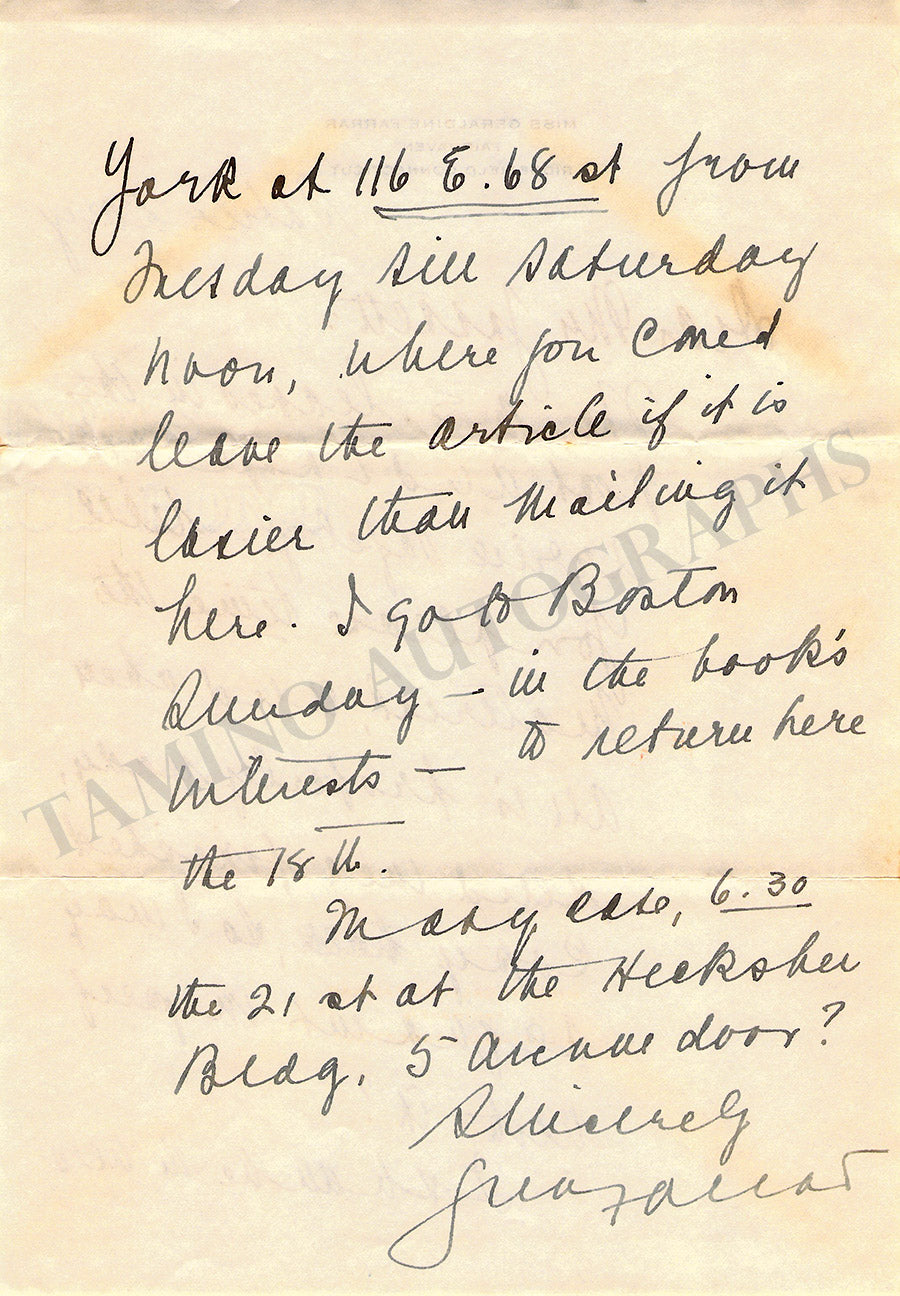 York at 116 E. 68 st from
Tuesday till Saturday
noon, where you could
leave the article if it is
easier than mailing it
here. I go to Boston
Sunday – in the book's
interests – to return here
the 18th.
In any case, 6.30
the 21st at the Hecksher
Bldg. 5 Avenue door?
Sincerely
Farrar
TAMINO AUTOGRAPHS
MISS GERALDINE FARRAR